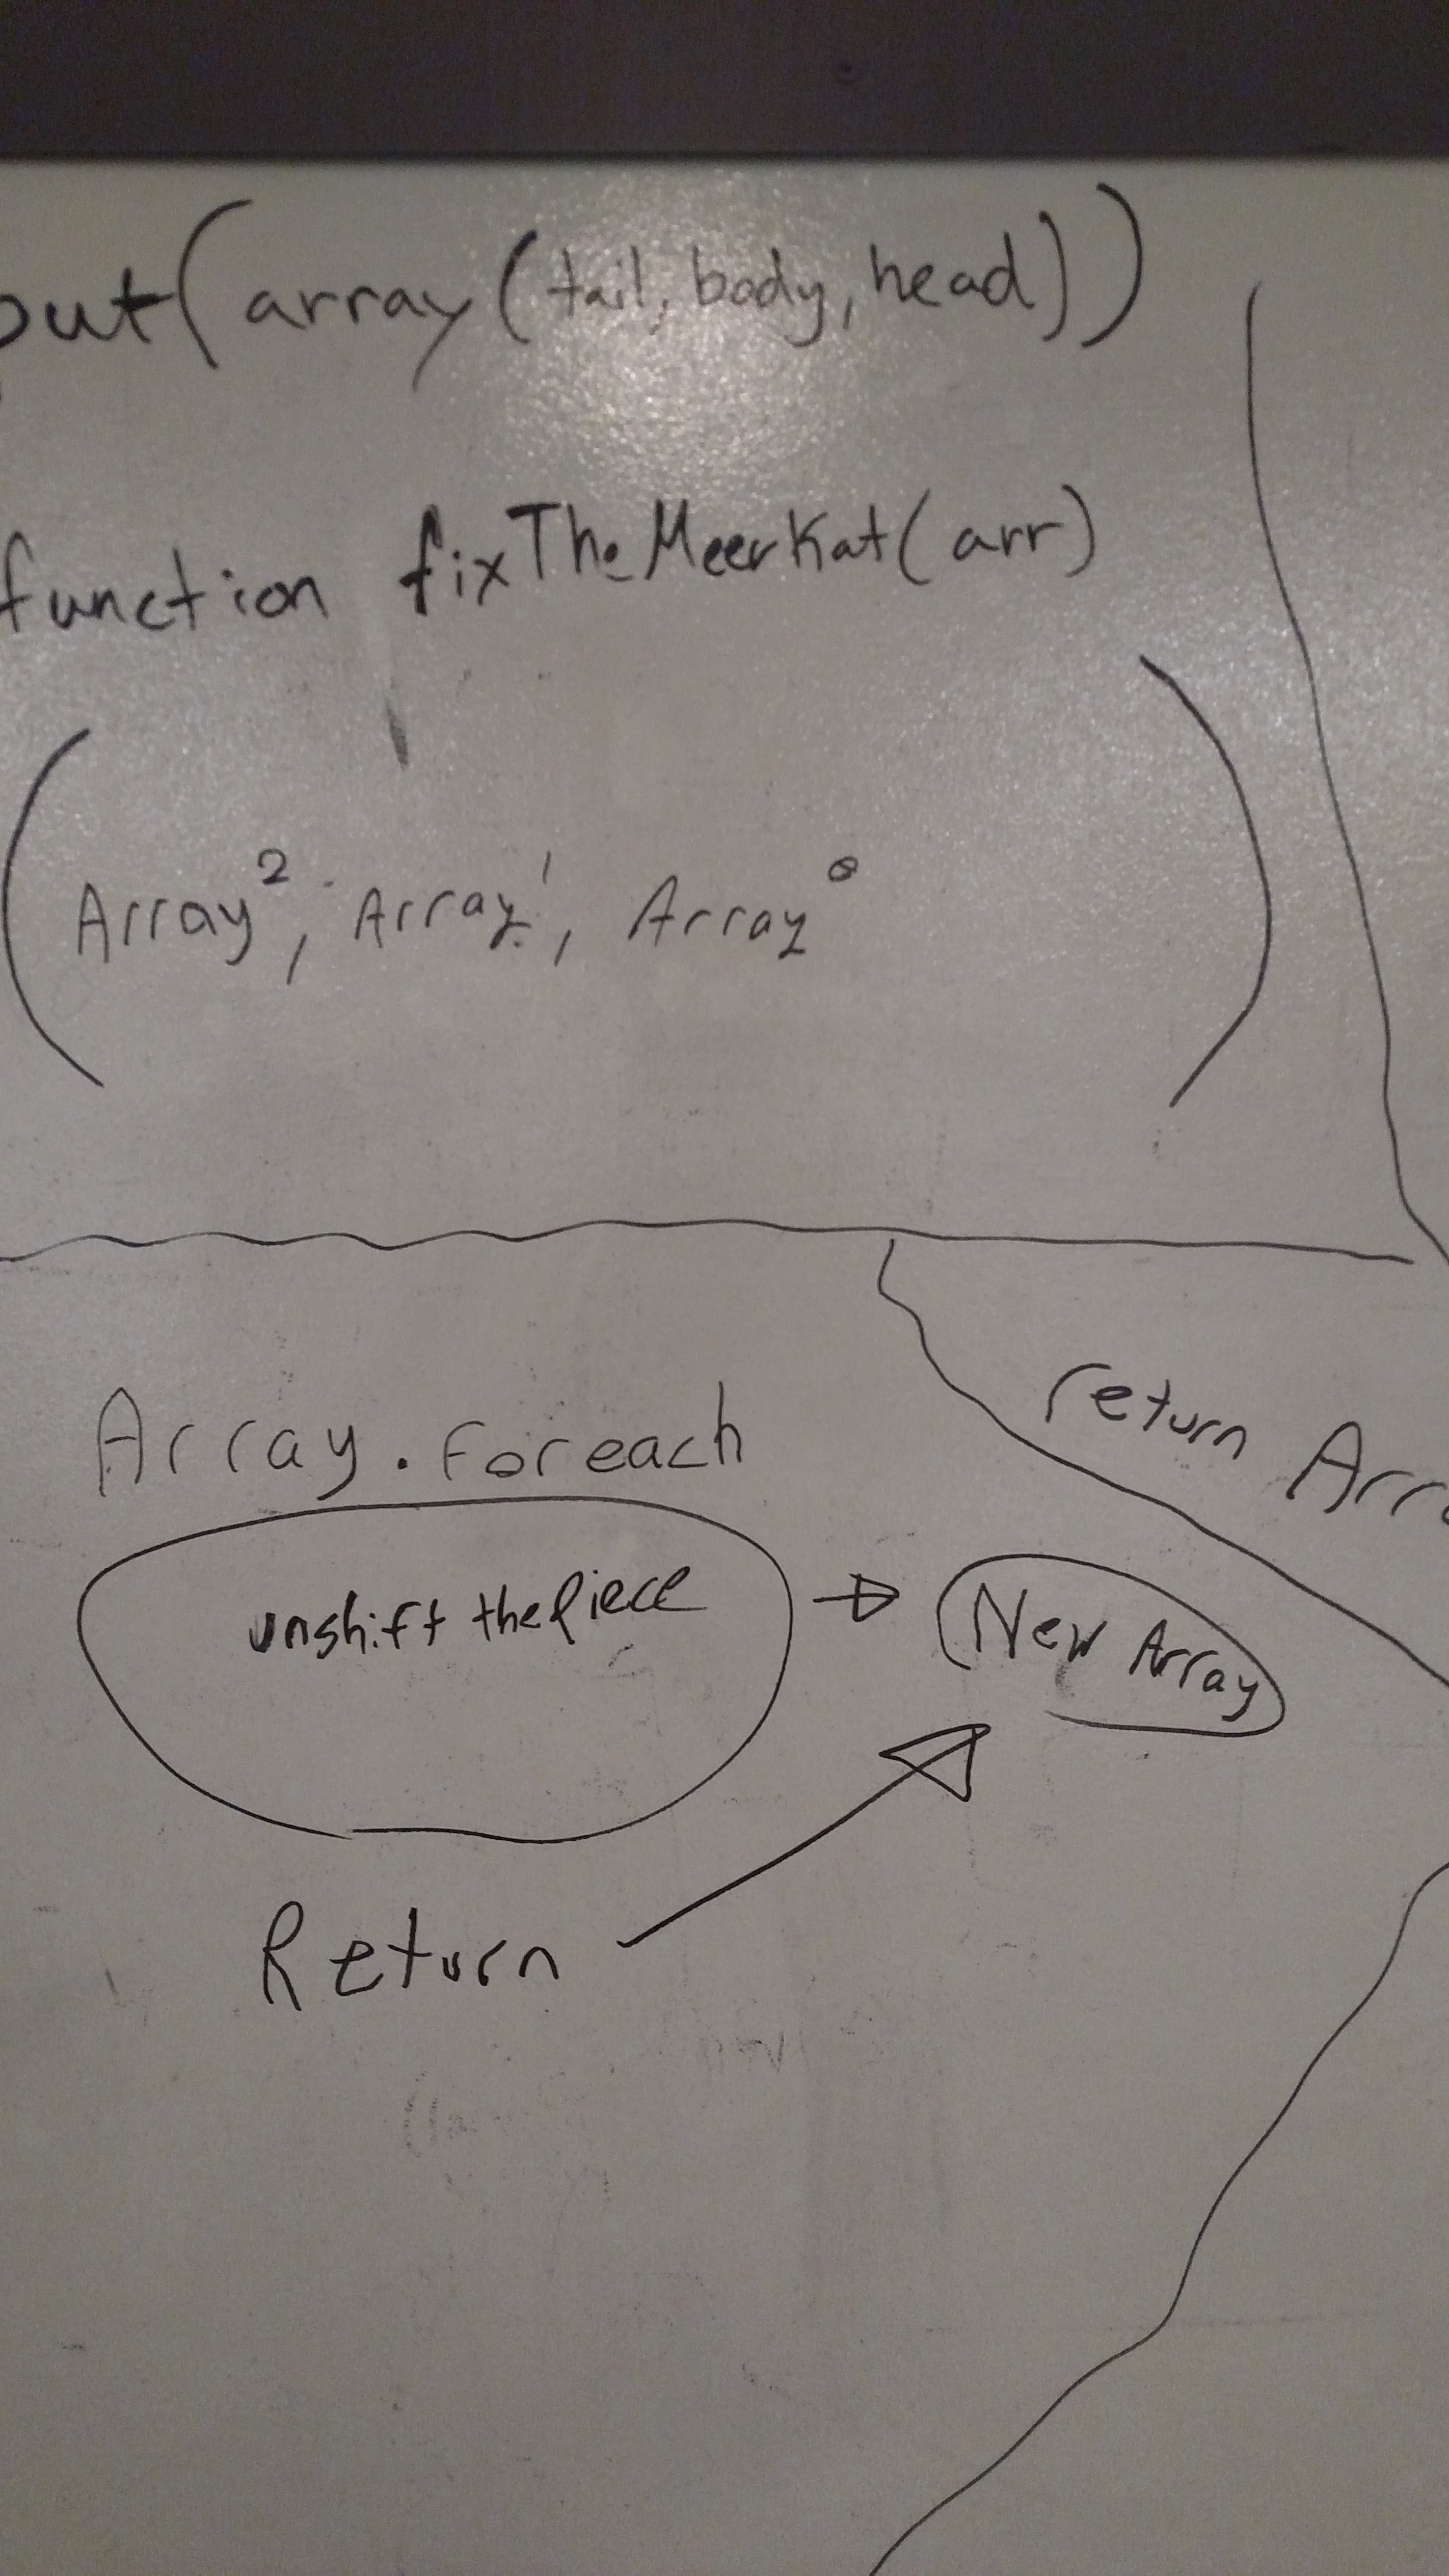 put(array(tail, body, head))
function fixTheMeerKat(arr)
(Array², Array¹, Array⁰)
Array.Foreach
return Arr
unshift the Piece → New Array
Return